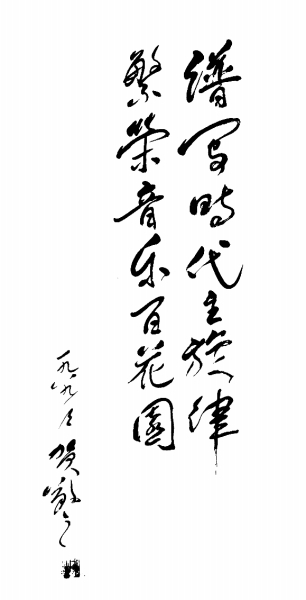 谱写時代主旋律
繁荣音乐百花園
一九八九.八
贺敬之